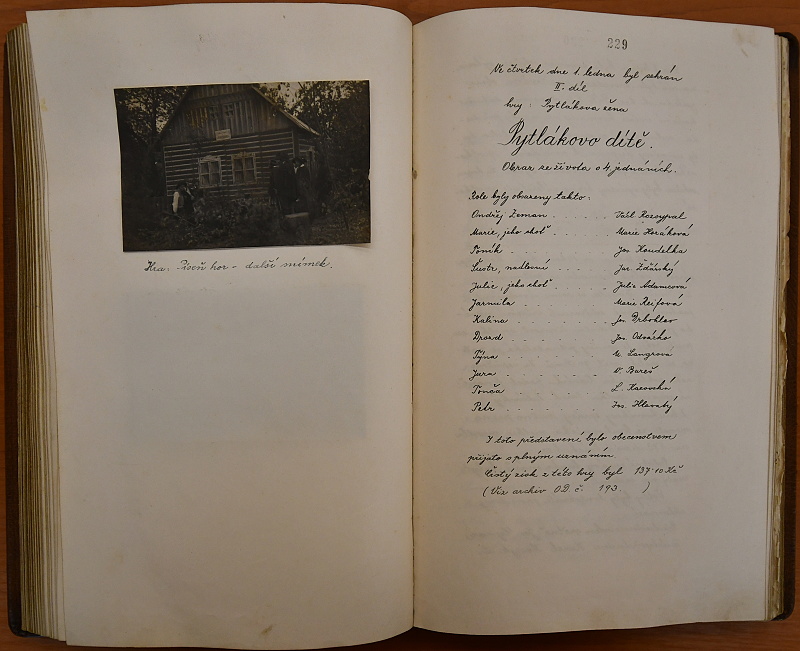 Hra: Píseň hor - další snímek.
229
Ve čtvrtek dne 1. ledna byl sehrán
II. díl
hry: Pytlákova žena
Pytlákovo dítě.
Obraz ze života o 4 jednáních.
Role byly obsazeny takto:
Ondřej Zeman Václ Rozsypal
Marie, jeho choť Marie Horáková
Toník Jos Koudelka
Šustr, nadlesní Jar. Žďárský
Julie, jeho choť Julie Adamcová
Jarmila Marie Reifová
Kalina Jos Drbohlav
Drozd Jos.
Týna Langrová
Jura V. Bareš
Tonča L.
Petr Jos. Hlavatý
I toto představení bylo obecenstvem
přijato s plným uznáním.
Čistý zisk z této hry byl 137·10 Kč
(Viz archiv OD. č. 193. )